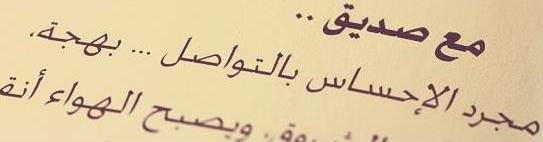 مع صديق ..
مجرد الإحساس بالتواصل ... بهجة،
ويصبح الهواء أنة